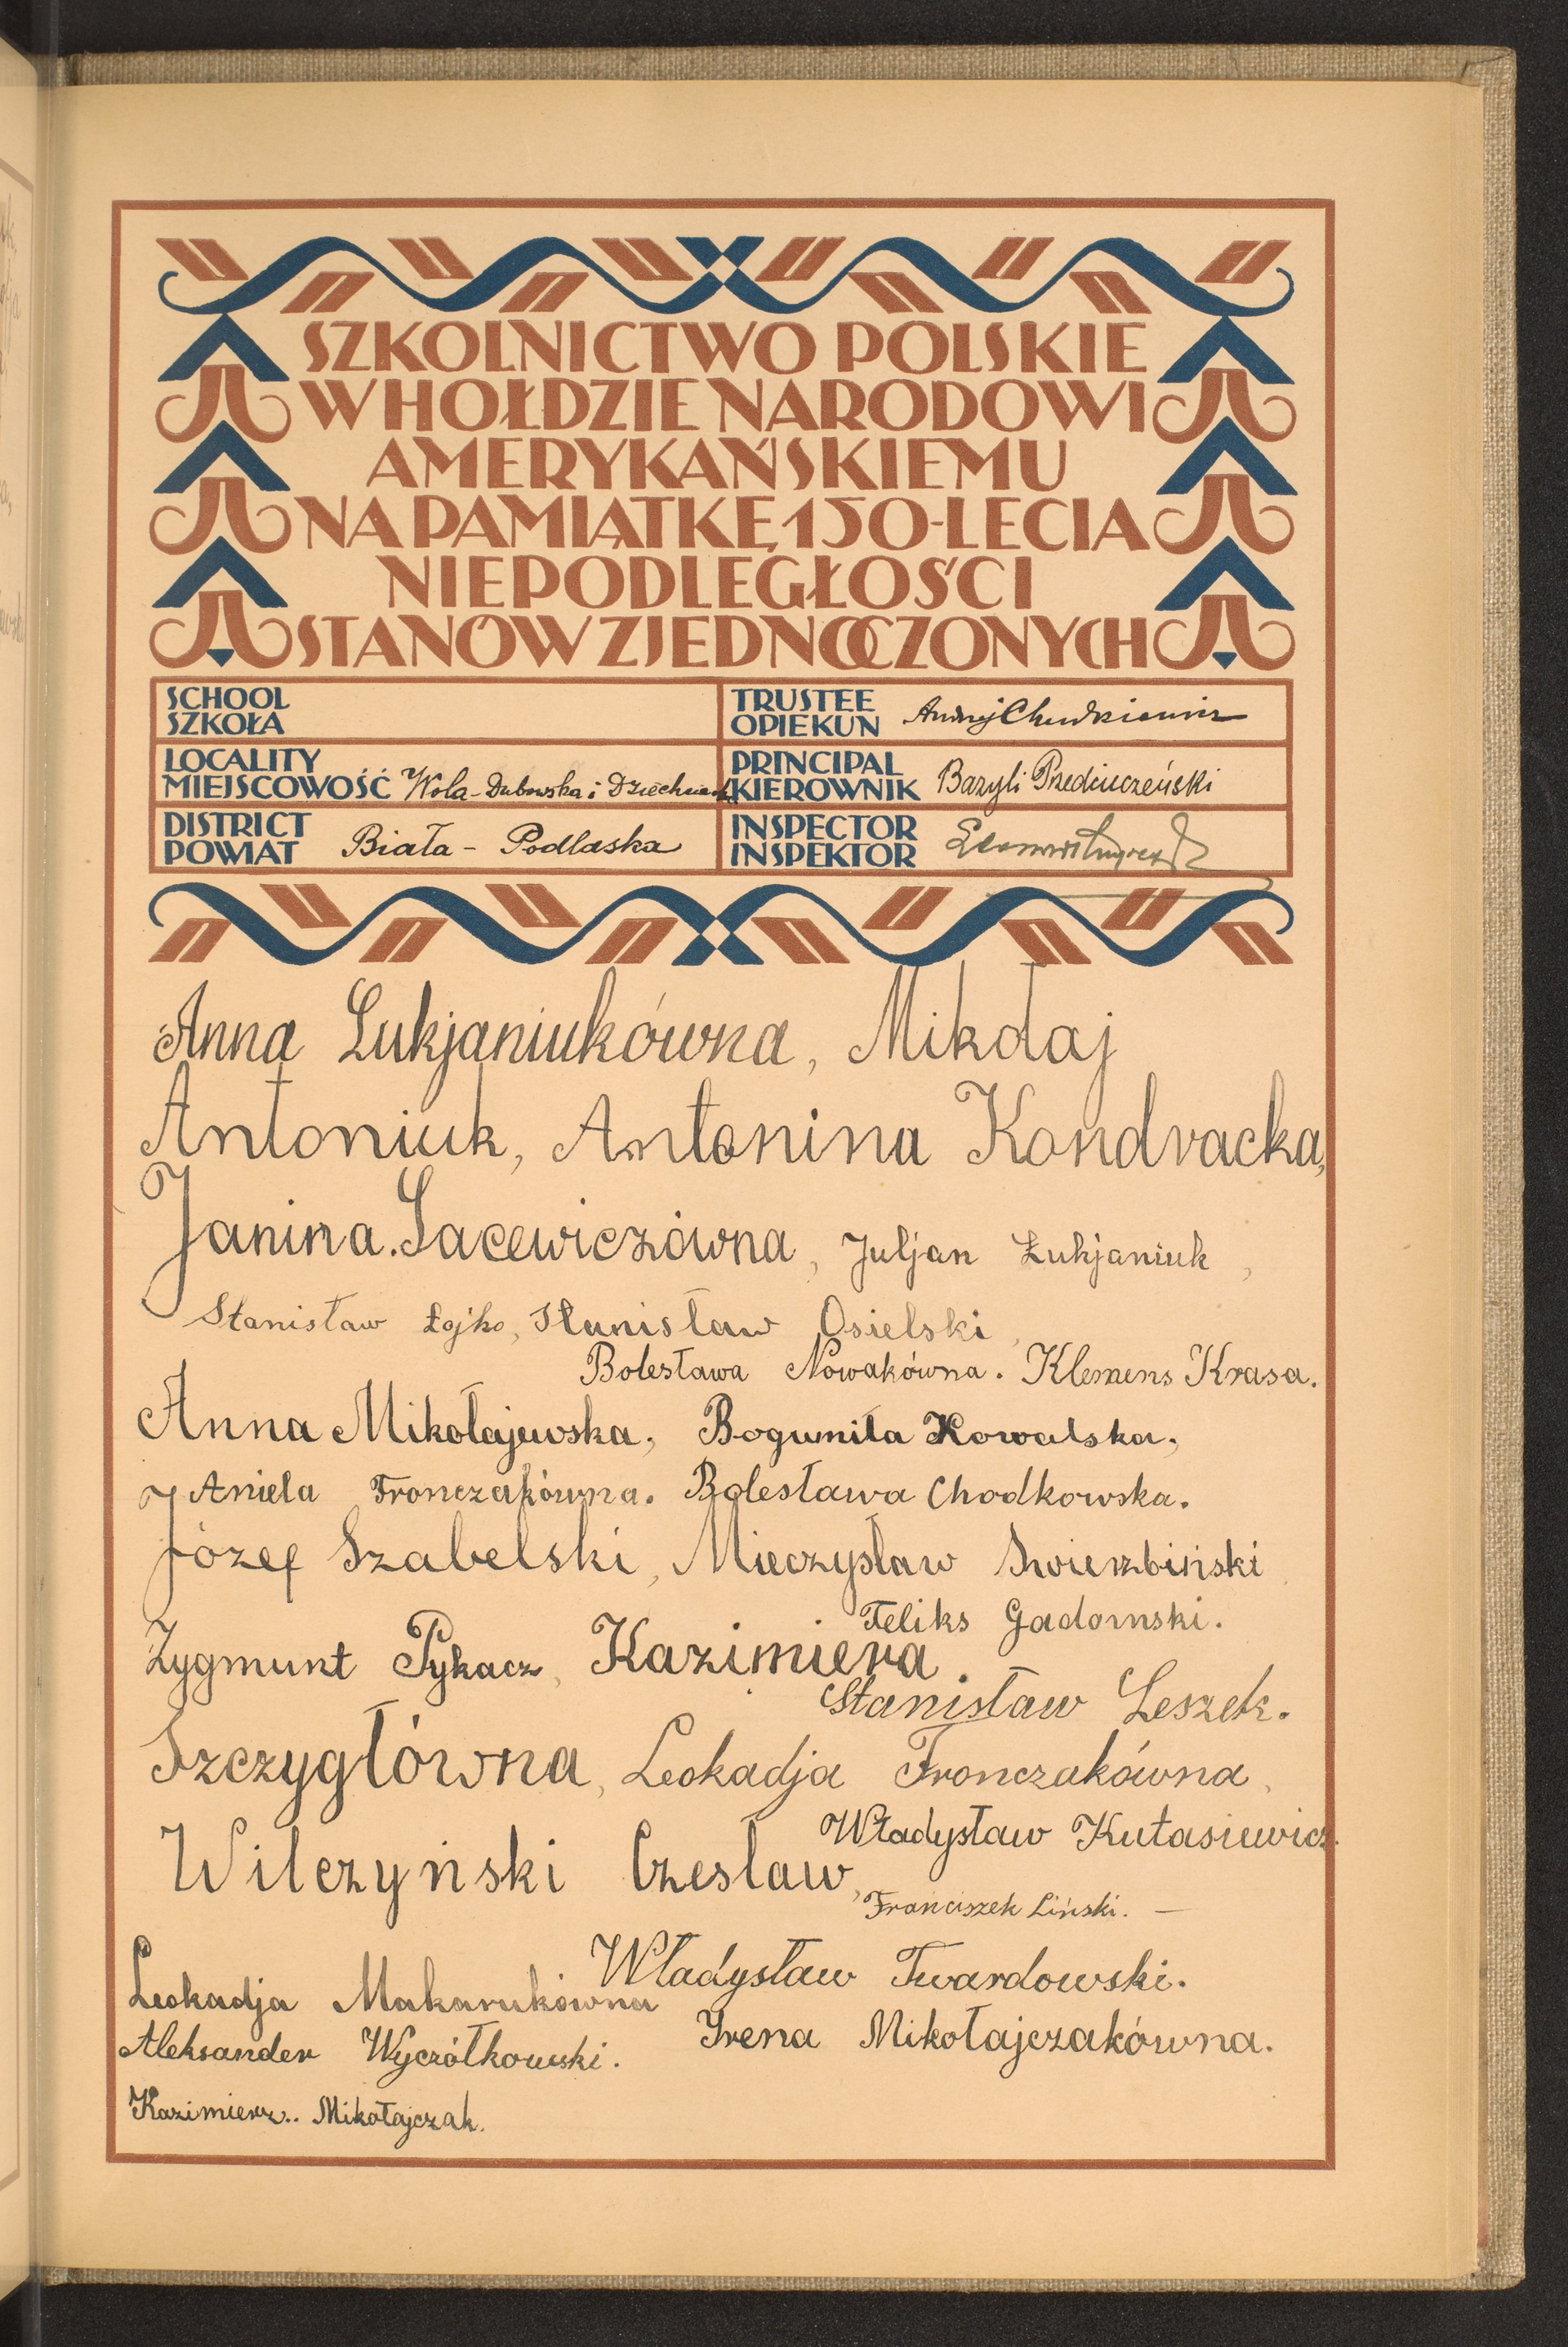 SZKOLNICTWO POLSKIE
W HOŁDZIE NARODOWI
AMERYKAŃSKIEMU
NA PAMIĄTKĘ 150-LECIA
NIEPODLEGŁOŚCI
STANÓW ZJEDNOCZONYCH
SCHOOL
SZKOŁA
TRUSTEE
OPIEKUN Andrzej
LOCALITY
MIEJSCOWOŚĆ Wola-Dubowska i
PRINCIPAL
KIEROWNIK Bazyli
DISTRICT
POWIAT Biała - Podlaska
INSPECTOR
INSPEKTOR
Anna Łukjaniukówna, Mikołaj
Antoniuk, Antonina Kondracka,
Janina Sacewiczówna, Juljan Łukjaniuk,
Stanisław Łojko, Stanisław Osielski,
Bolesława Nowakówna. Klemens Krasa.
Anna Mikołajewska, Bogumiła Kowalska,
Aniela Fronczakówna. Bolesława Chodkowska.
Józef Szabelski, Mieczysław Swierzbiński
Feliks Gadomski.
Zygmunt Pykacz, Kazimiera
Stanisław Leszek.
Szczygłówna, Leokadja Fronczakówna,
Władysław Kutasiewicz.
Wilczyński Czesław,
Franciszek Liński. —
Władysław Twardowski.
Leokadja Makarukówna
Irena Mikołajczakówna.
Aleksander Wyczółkowski.
Kazimierz.. Mikołajczak.